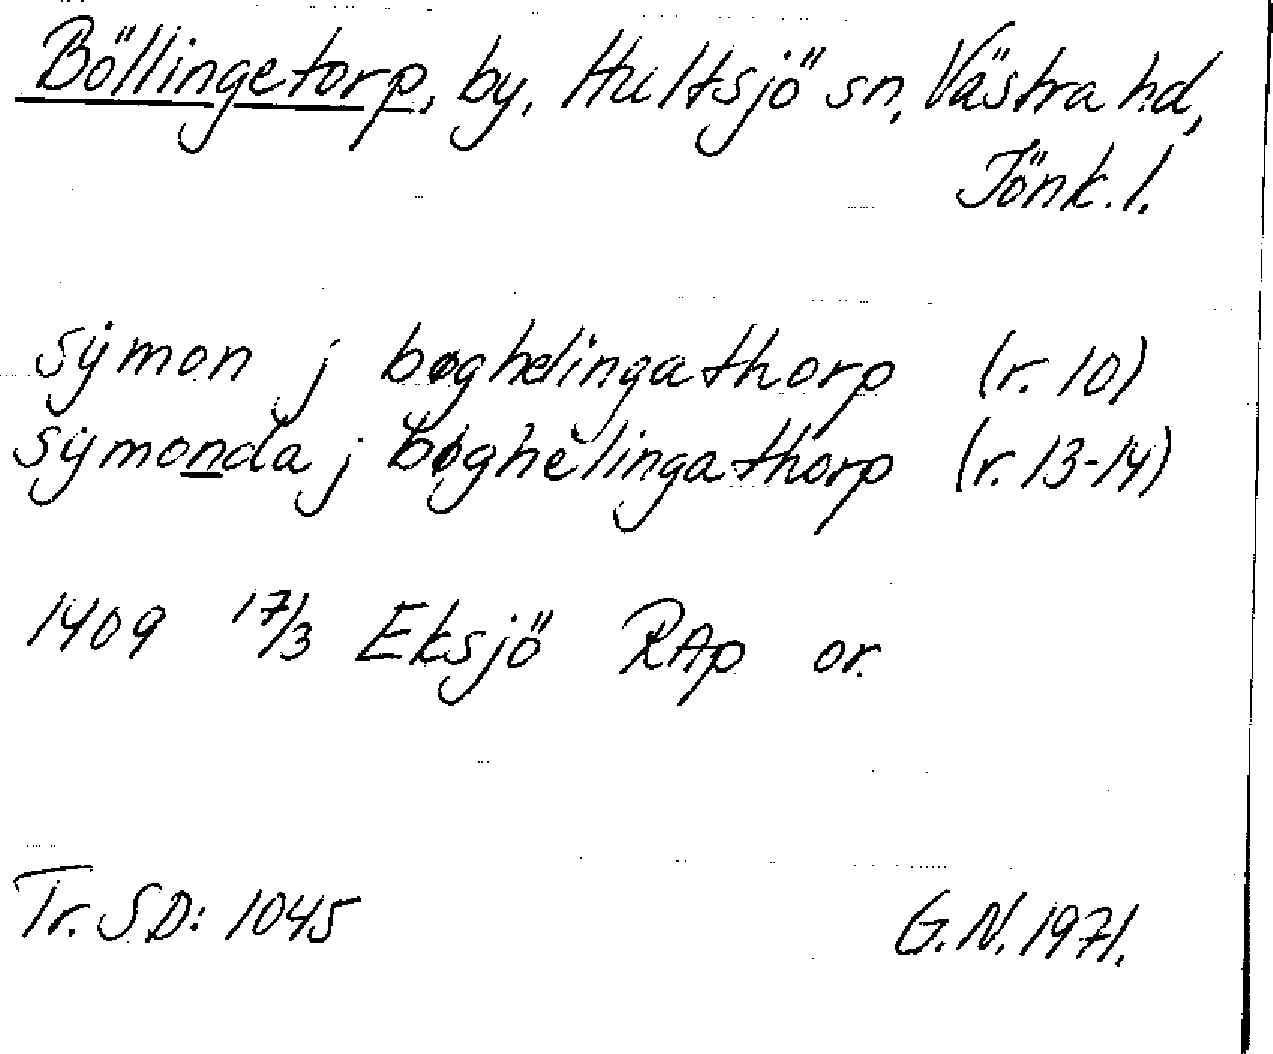 Böllingetorp, by, Hultsjö sn, Västra hd,
Jönk. l.
sÿmon j bøghelingathorp (r. 10)
sÿmonda j bøghelingathorp (r. 13-14)
1409 17/3 Eksjö RAp or.
Tr. SD: 1045 G.N. 1971.